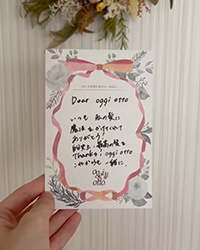 Dear oggi otto
いつも 私の髪に
魔法をかけてくれて
ありがとう!
史上、最高の髪を
Thanks! oggi otto
これからも一緒に。
oggi
otto